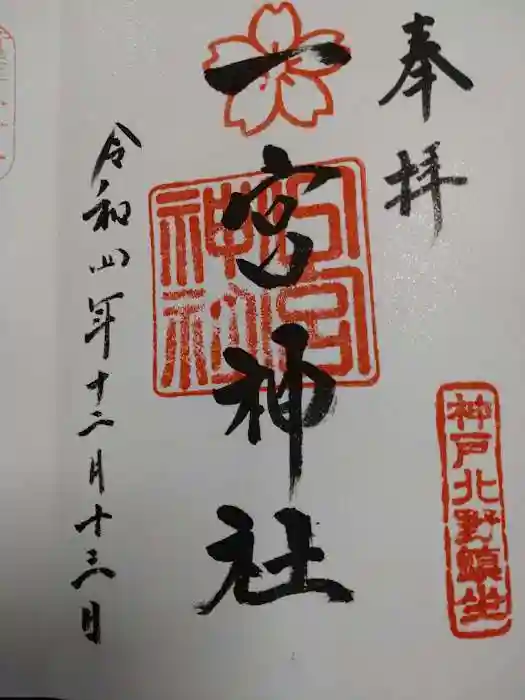 奉拝
神戸北野鎮坐
一宮神社
令和四年十二月十三日